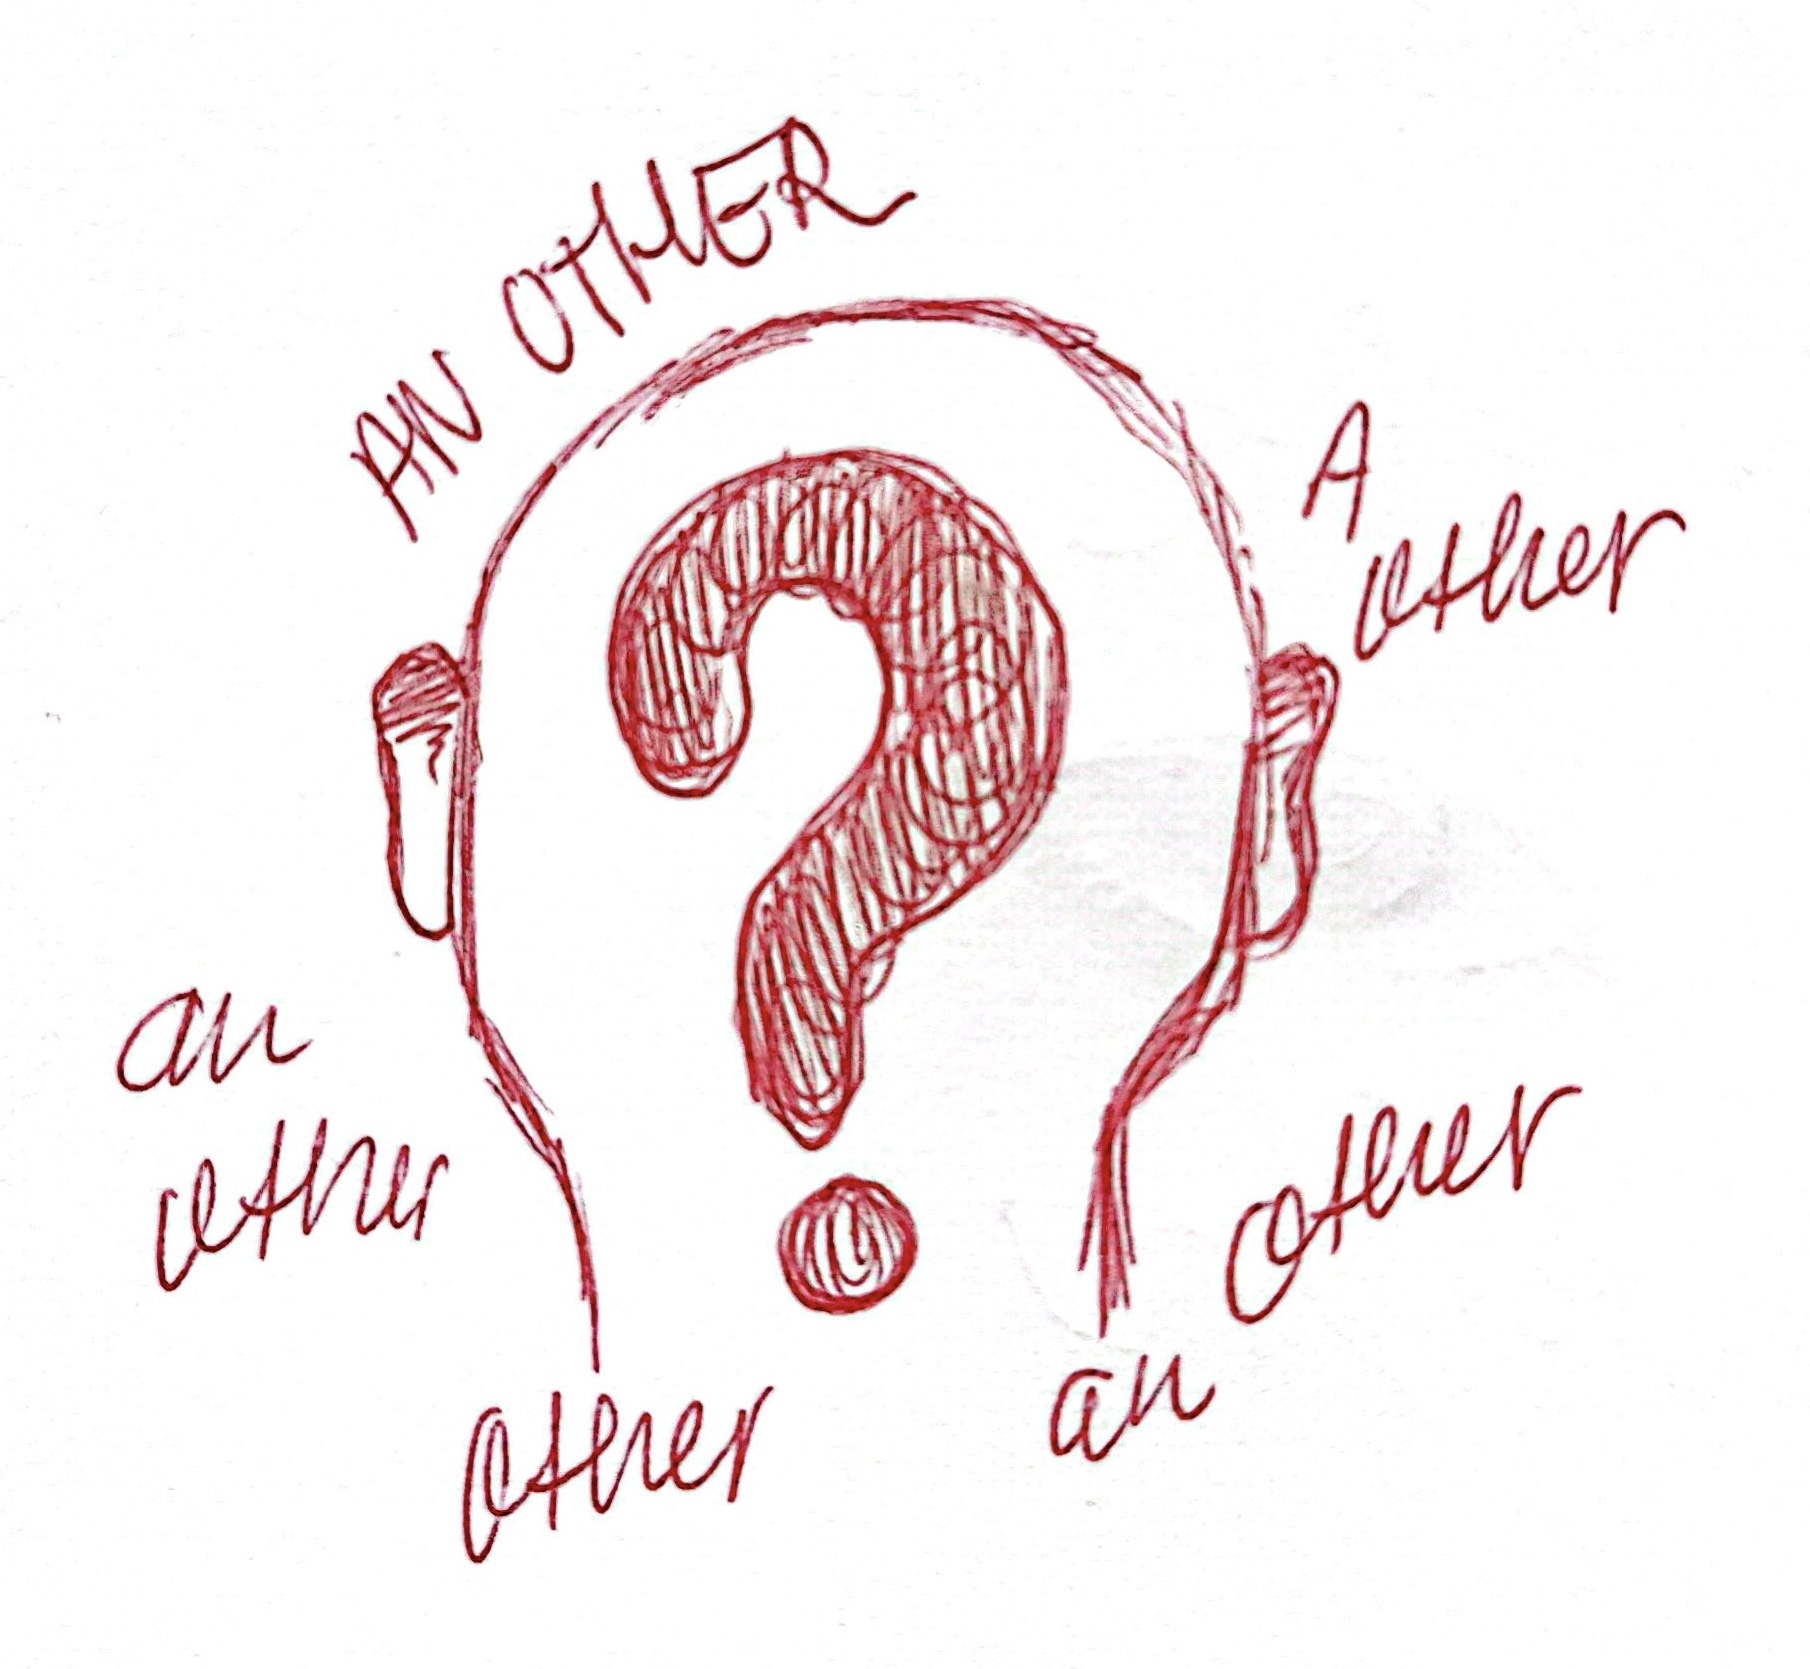 AN OTHER
A
other
an
other
other
an
other